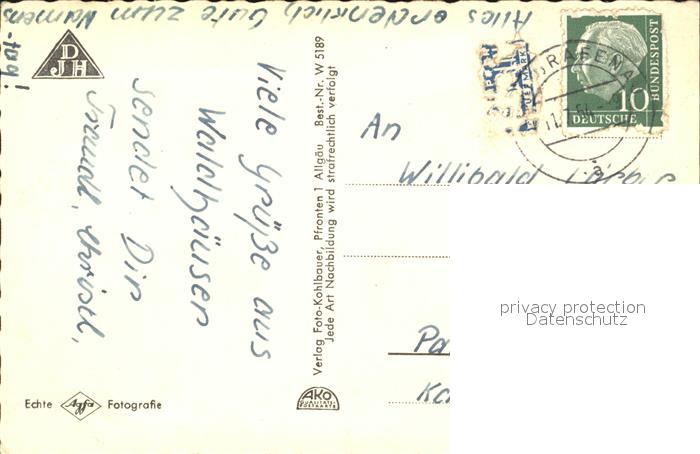 Alles ordentlich Gute zum Namens
-tag!
DJH
Viele Grüße aus
Waldhäuser
sendet Dir
Traudl, Christl,
Verlag Foto-Kohlbauer, Pfronten 1 Allgäu Best.-Nr. W 5189
Jede Art Nachbildung wird strafrechtlich verfolgt
Echte Agfa Fotografie
AKO
QUALITÄTS-
POSTKARTE
10
DEUTSCHE
BUNDESPOST
GRAFENA
An
Willibald
privacy protection
Datenschutz
Pa